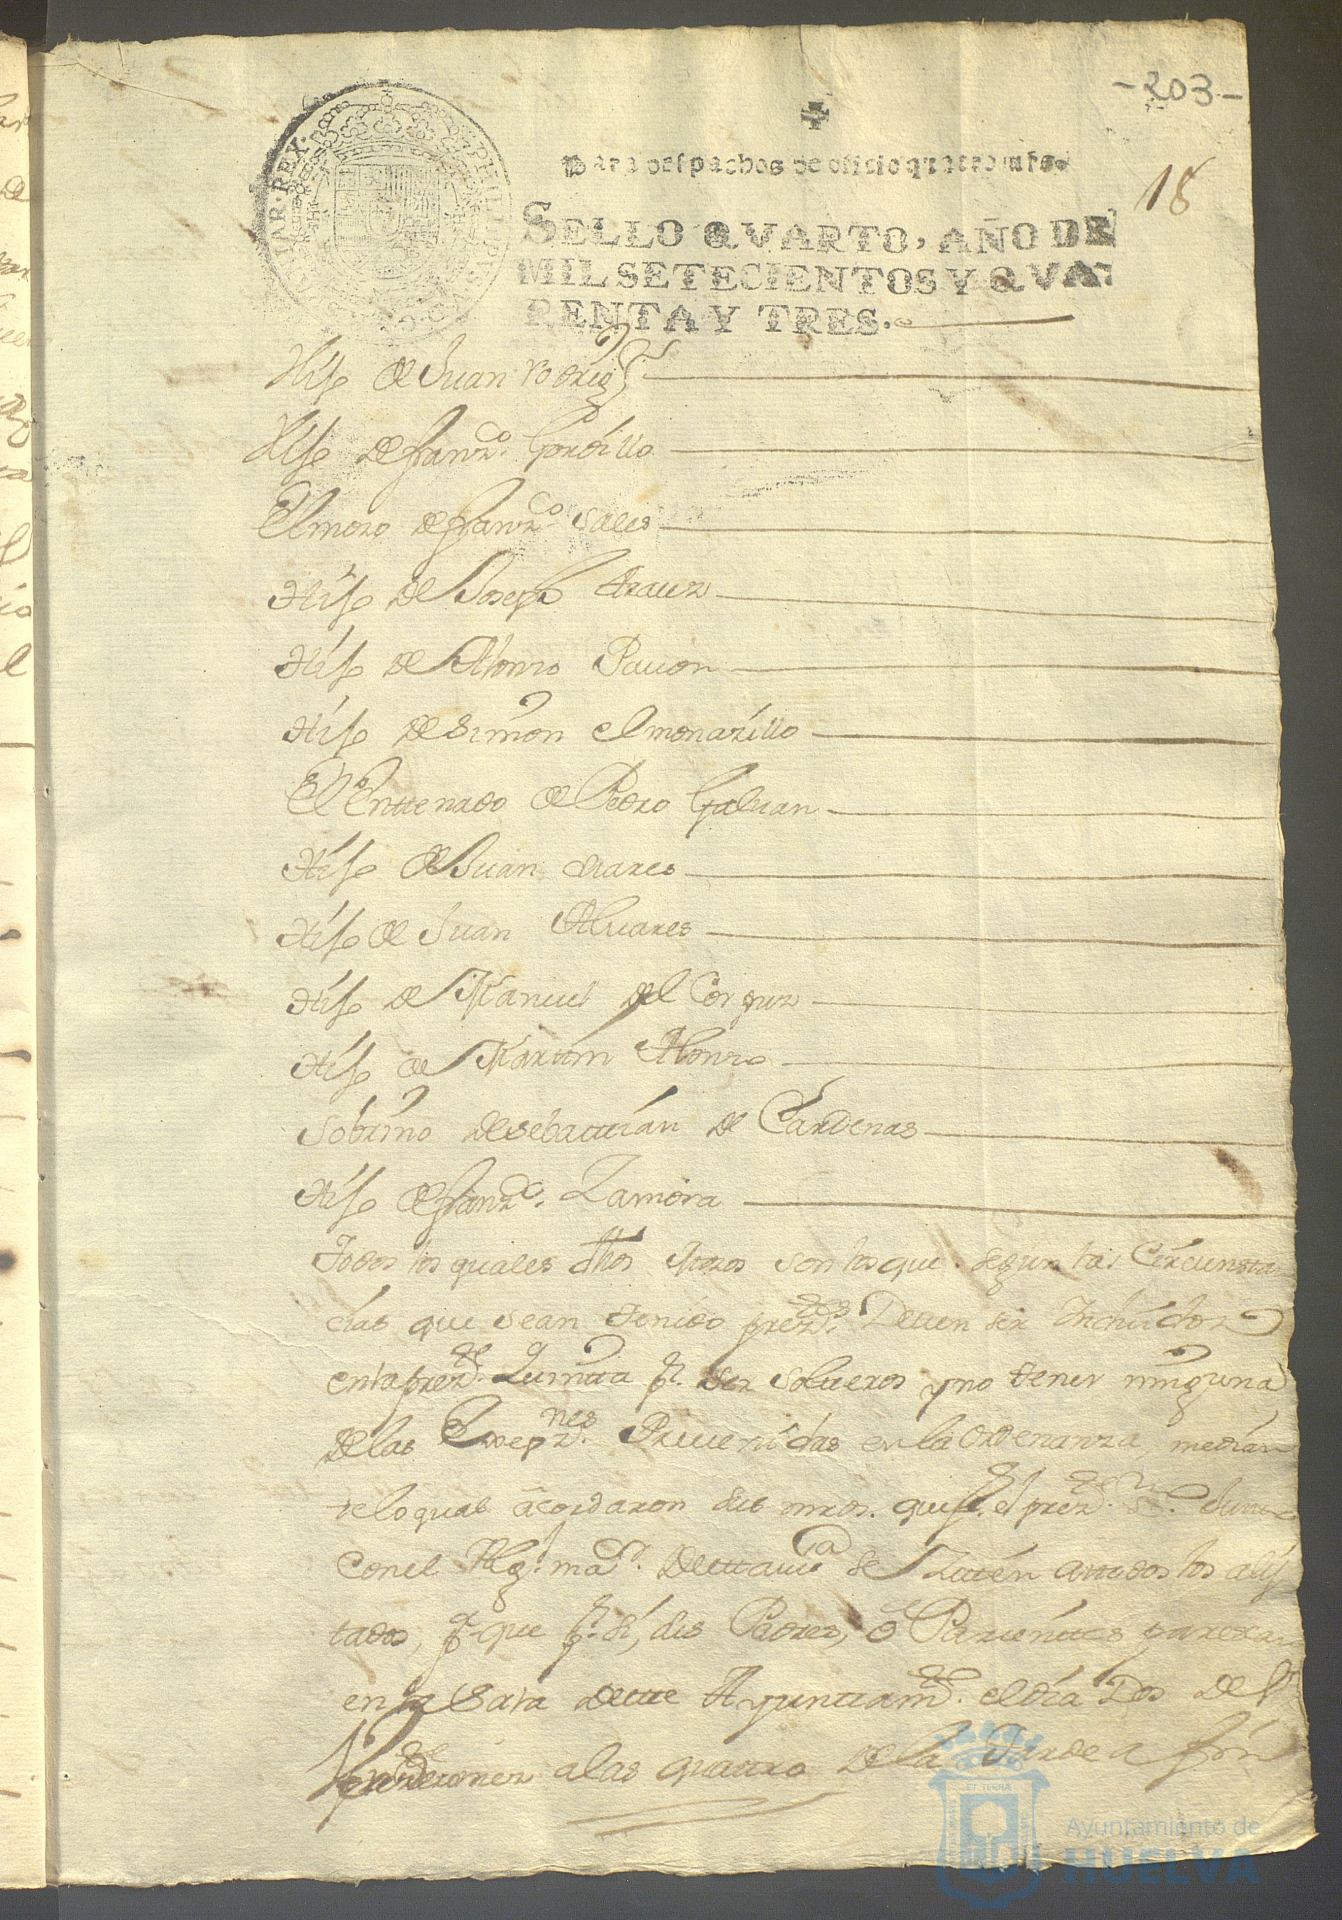 -203-
18
Para despachos de oficio quatro mrs.
SELLO QVARTO, AÑO DE
MIL SETECIENTOS Y QVA-
RENTA Y TRES.
Hijo de Juan Rodrigz.
Hijo de franzco. Gordillo
El mozo de franzco. Sales
Hijo de Joseph Arauz
Hijo de Alonzo Pavon
Hijo de Simon el monazillo
El Enttenado de Pedro Galvan
Hijo de Juan
Hijo de Juan Alvares
Hijo de Manuel del
Hijo de Martin Alonzo
Sobrino de sebattian de Cardenas
Hijo de franzco. Zamora
Todos los quales dhos mozos son los que segun las Circunstan
cias que sean tenido prezttes. Deven ser Incluidos
en la prezte. Quintta pr. ser solteros y no tener ninguna
de las Exepznes. Prevenidas en la Ordenanza, median
te lo qual acordaron sus mrds. que pr. el prezte. SSno. Junto
Con el Alg. mor. de etta via se Zitten a ttodos los alis
tados, pa. que pr. si, sus Padres, o Parienttes parezcan
en la Sala de tte Ayunttamto. el dia Dos de
a las quattro de la tarde a fin
Ayuntamiento de
HUELVA